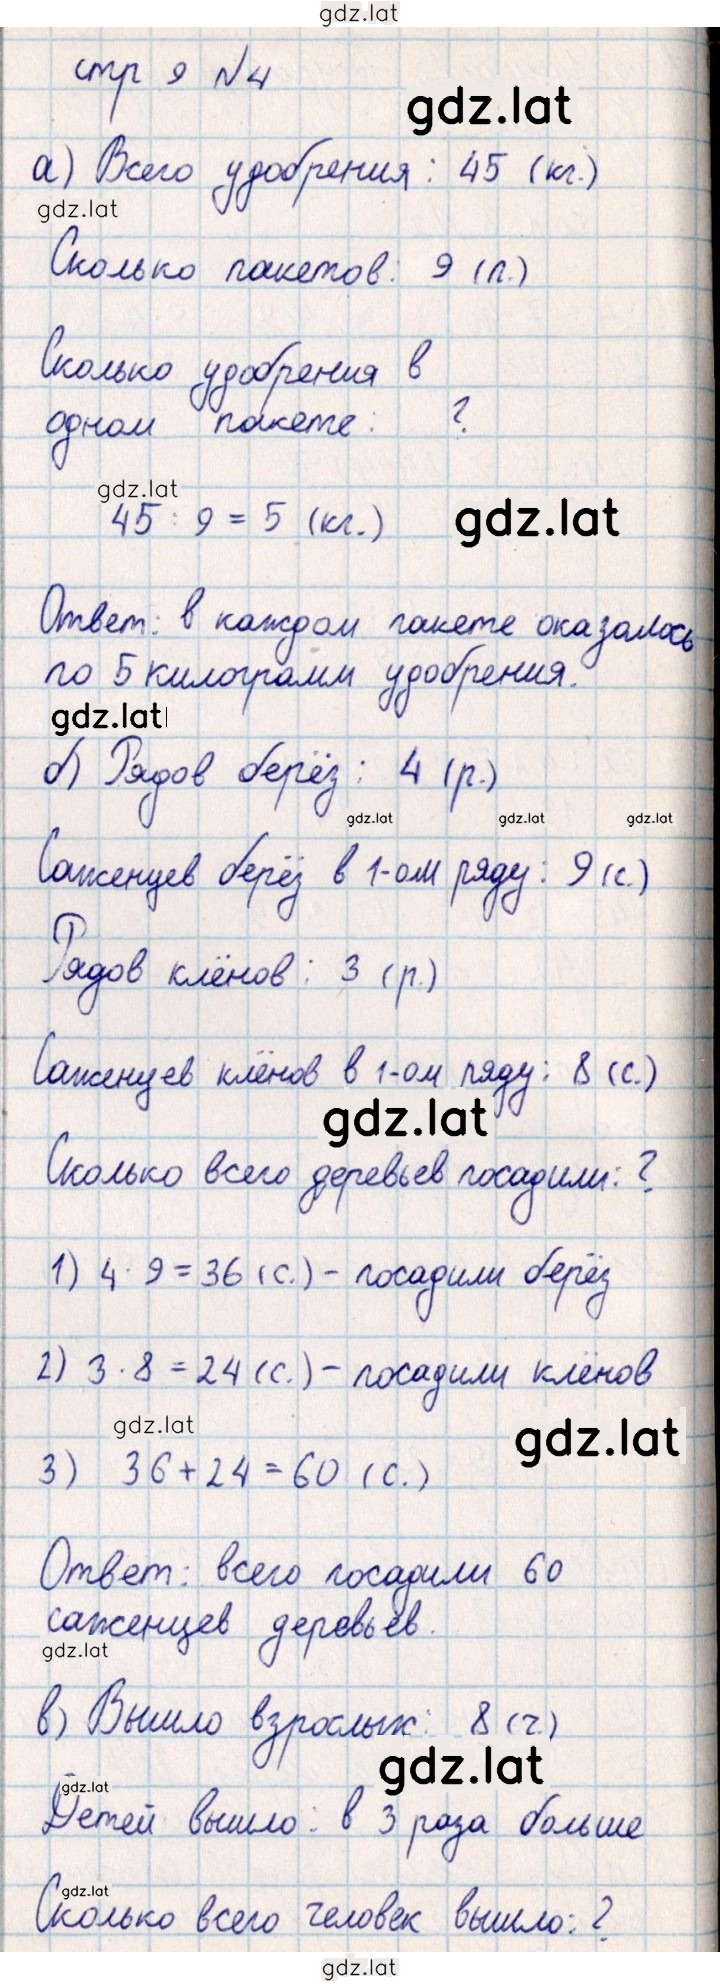 gdz.lat
стр 9 №4
gdz.lat
а) Всего удобрения: 45 (кг.)
gdz.lat
Сколько пакетов: 9 (п.)
Сколько удобрения в
одном пакете: ?
gdz.lat
45 : 9 = 5 (кг.)
gdz.lat
Ответ: в каждом пакете оказалось
по 5 килограмм удобрения.
gdz.lat
б) Рядов берёз: 4 (р.)
gdz.lat gdz.lat gdz.lat
Саженцев берёз в 1-ом ряду: 9 (с.)
Рядов клёнов: 3 (р.)
Саженцев клёнов в 1-ом ряду: 8 (с.)
gdz.lat
Сколько всего деревьев посадили: ?
1) 4 · 9 = 36 (с.) - посадили берёз
2) 3 · 8 = 24 (с.) - посадили клёнов
gdz.lat
gdz.lat
3) 36 + 24 = 60 (с.)
Ответ: всего посадили 60
саженцев деревьев.
gdz.lat
в) Вышло взрослых: 8 (ч.)
gdz.lat
gdz.lat
Детей вышло: в 3 раза больше
gdz.lat
Сколько всего человек вышло: ?
gdz.lat